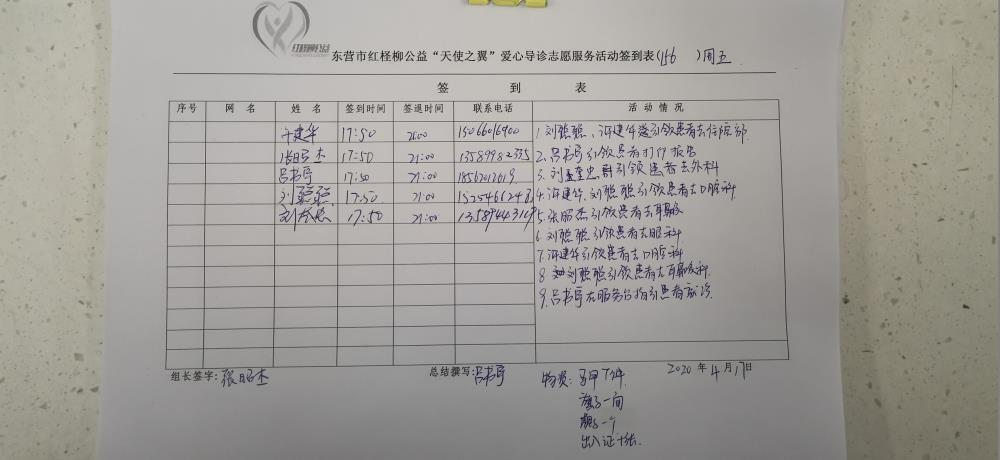 红柽柳公益
东营市红柽柳公益“天使之翼”爱心导诊志愿服务活动签到表(156 )周五
签 到 表
序号 网 名 姓 名 签到时间 签退时间 联系电话 活动情况
建华 17:50 21:00 15066016900
张昭杰 17:50 21:00 13589982335
吕书宇 17:50 21:00 18562012619
刘聪聪 17:50 21:00
17:50 21:00
1.刘聪聪、许建华引领患者去住院部
2.吕书宇引领患者打印报告
3.刘奎忠引领患者去外科
4.许建华、刘聪聪引领患者去口腔科
5.张昭杰引领患者去耳鼻喉
6.刘聪聪引领患者去眼科
7.许建华引领患者去口腔科
8.刘聪聪引领患者去耳鼻喉科
9.吕书宇在服务台指引患者就诊
组长签字:张昭杰 总结撰写:吕书宇 物资:马甲 件 2020 年 4 月 17 日
一个
出入证 张